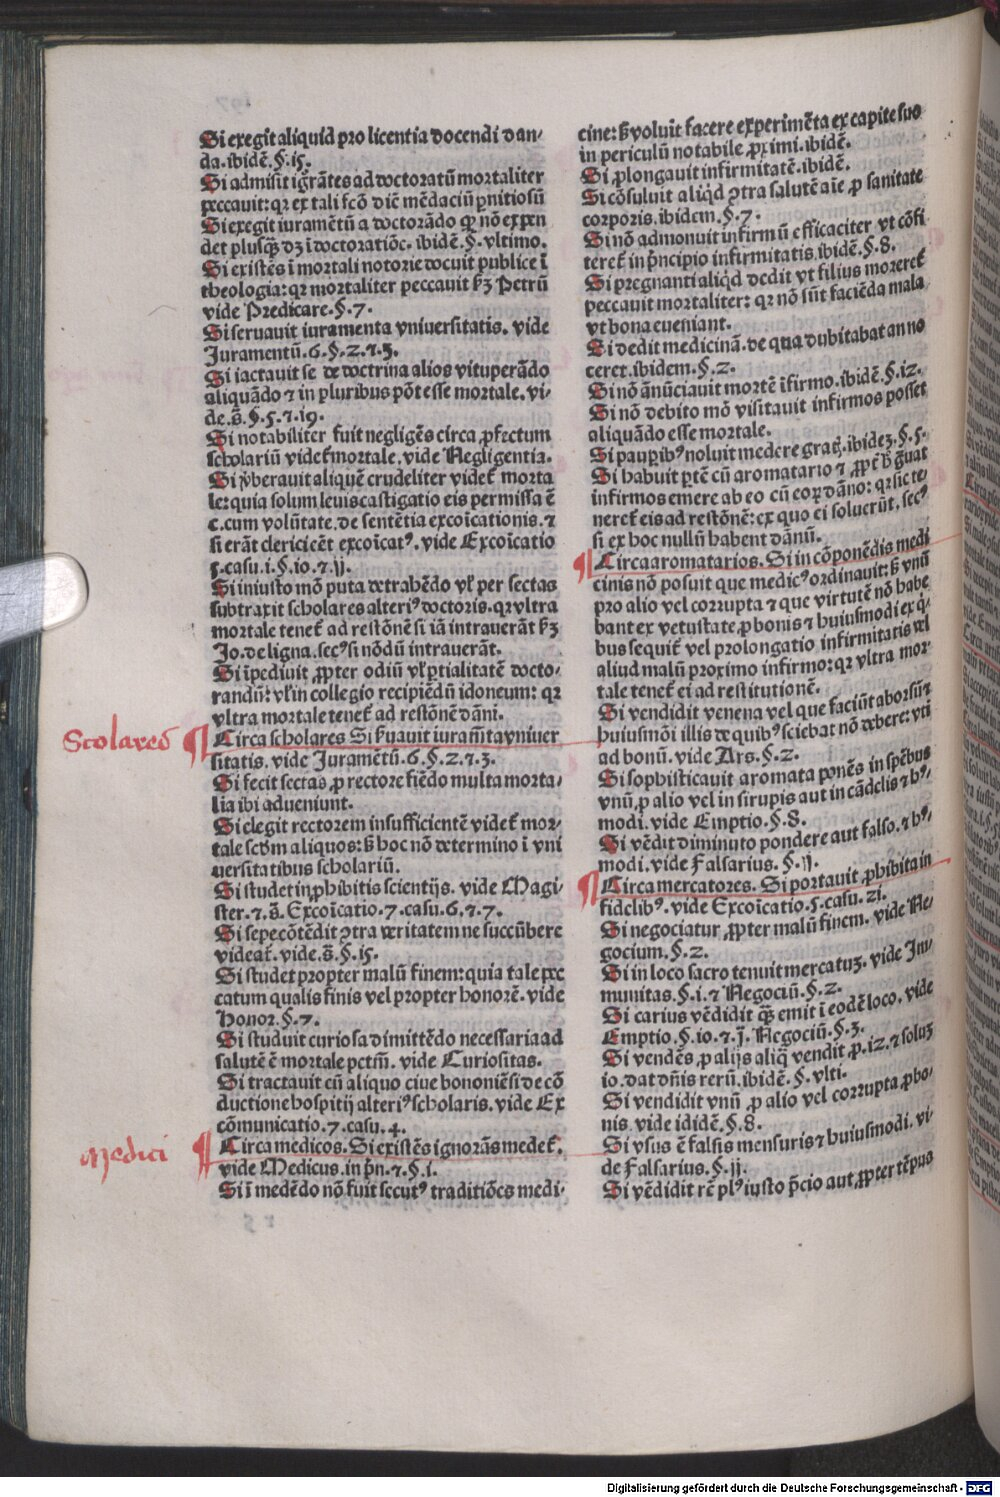 Si exegit aliquid pro licentia docendi dan-
da. ibidē. §. 15.
Si admisit igrātes ad doctoratū mortaliter
peccauit: qr ex tali fcō dic̄ mēdaciū pnitiosū
Si exegit iuramētū a doctorādo qr nō expen
det plusq̄ dz ī doctoratiōe. ibidē. §. vltimo.
Si existēs ī mortali notorie docuit publice ī
theologia: qr mortaliter peccauit ẜz Petrū
vide Predicare. §. 7.
Si seruauit iuramenta vniuersitatis. vide
Juramentū. 6. §. 2. ⁊ .3.
Si iactauit se de doctrina alios vituperādo
aliquādo ⁊ in pluribus pōt esse mortale. vi-
de. s̄. §. 5. ⁊ .19.
Si notabiliter fuit negligēs circa ꝓfectum
scholariū videt̄ mortale. vide Negligentia.
Si v̄berauit aliquē crudeliter videt̄ morta
le: quia solum leuis castigatio eis permissa ē
c. cum volūtate. de sentētia excoīcationis. ⁊
si erāt clerici eēt excoīcatꝰ. vide Excoīcatio
5. casu. i. §. 10. ⁊ .ij.
Si iniusto mō puta detrahēdo vl̓ per sectas
subtraxit scholares alteriꝰ doctoris. qr vltra
mortale tenet̄ ad restōnē si iā intrauerāt ẜz
Jo. de ligna. secꝰ si nōdū intrauerāt.
Si īpediuit ꝓpter odiū vl̓ ꝑtialitatē docto-
randū: vl̓ in collegio recipiēdū idoneum: qr
vltra mortale tenet̄ ad restōnē dāni.
Scolares ¶ Circa scholares Si ẜuauit iuramta vniuer
sitatis. vide Juramētū. 6. §. 2. ⁊ .3.
Si fecit sectas ꝓ rectore fiēdo multa morta-
lia ibi adueniunt.
Si elegit rectorem insufficientē videt̄ mor-
tale scḋm aliquos: ẜ hoc nō determino ī vni
uersitatibus scholariū.
Si studet in ꝓhibitis scientijs. vide Magi-
ster. ⁊ .s̄. Excoīcatio. 7. casu. 6. ⁊ .7.
Si sepe cōtēdit ↄtra veritatem ne succūbere
videat̄. vide. s̄. §. 15.
Si studet propter malū finem: quia tale pec
catum qualis finis vel propter honorē. vide
Honor. §. 7.
Si studuit curiosa dimittēdo necessaria ad
salutē ē mortale pctm̄. vide Curiositas.
Si tractauit cū aliquo ciue bononiēsi de cō
ductione hospitij alteriꝰ scholaris. vide Ex
cōmunicatio. 7. casu. 4.
Medici ¶ Circa medicos. Si existēs ignorās medet̄.
vide Medicus. in pn̄. ⁊ .§. i.
Si ī medēdo nō fuit secutꝰ traditiōes medi-
cine: ẜ voluit facere experimēta ex capite suo
in periculū notabile ꝓximi. ibidē.
Si ꝓlongauit infirmitatē. ibidē.
Si cōsuluit aliqd ↄtra salutē aīe ꝓ sanitate
corporis. ibidem. §. 7.
Si nō admonuit infirmū efficaciter vt cōfi
teret̄ in pn̄cipio infirmitatis. ibidē. §. 8.
Si pregnanti aliqd dedit vt filius moreret̄
peccauit mortaliter: qr nō sūt faciēda mala
vt bona eueniant.
Si dedit medicinā. de qua dubitabat an no
ceret. ibidem. §. 2.
Si nō ānūciauit mortē īfirmo. ibidē. §. 12.
Si nō debito mō visitauit infirmos posset
aliquādo esse mortale.
Si pauꝑibꝰ noluit medere gratꝭ. ibidez. §. 5.
Si habuit ꝑtē cū aromatario ⁊ ꝓpt̄ h̄ grauat
infirmos emere ab eo cū eoꝝ dāno: qr sic te
neret̄ eis ad restōnē: ex quo ei soluerūt. secꝰ
si ex hoc nullū habent dānū.
¶ Circa aromatarios. Si in cōponēdis medi
cinis nō posuit que medicꝰ ordinauit: ẜ vnū
pro alio vel corrupta ⁊ que virtutē nō habe
bant ex vetustate ꝓ bonis ⁊ huiusmodi ex q̇-
bus sequit̄ vel prolongatio infirmitatis vel
aliud malū proximo infirmo: qr vltra mor
tale tenet̄ ei ad restitutionē.
Si vendidit venena vel que faciūt aborsū ⁊
huiusmōi illis de quibꝰ sciebat nō debere vti
ad bonū. vide Ars. §. 2.
Si sophisticauit aromata ponēs in spēbus
vnū ꝓ alio vel in sirupis aut in cādelis ⁊ hꝰ-
modi. vide Emptio. §. 8.
Si vēdit diminuto pondere aut falso. ⁊ hꝰ-
modi. vide Falsarius. §. ij.
¶ Circa mercatores. Si portauit ꝓhibita in
fidelibꝰ. vide Excoīcatio. 5. casu. 21.
Si negociatur ꝓpter malū finem. vide Ne-
gocium. §. 2.
Si in loco sacro tenuit mercatuz. vide Im-
munitas. §. i. ⁊ Negociū. §. 2.
Si carius vēdidit q̄ emit ī eodē loco. vide
Emptio. §. 10. ⁊ .j. Negociū. §. 3.
Si vendēs ꝓ alijs aliq̄ vendit ꝓ .12. ⁊ soluz
10. dat dn̄is rerū. ibidē. §. vlti.
Si vendidit vnū ꝓ alio vel corrupta ꝓ bo-
nis. vide ididē. §. 8.
Si vsus ē falsis mensuris ⁊ huiusmodi. vi-
de Falsarius. §. ij.
Si vēdidit rē plꝰ iusto p̄cio aut ꝓpter tēpus
Digitalisierung gefördert durch die Deutsche Forschungsgemeinschaft - DFG